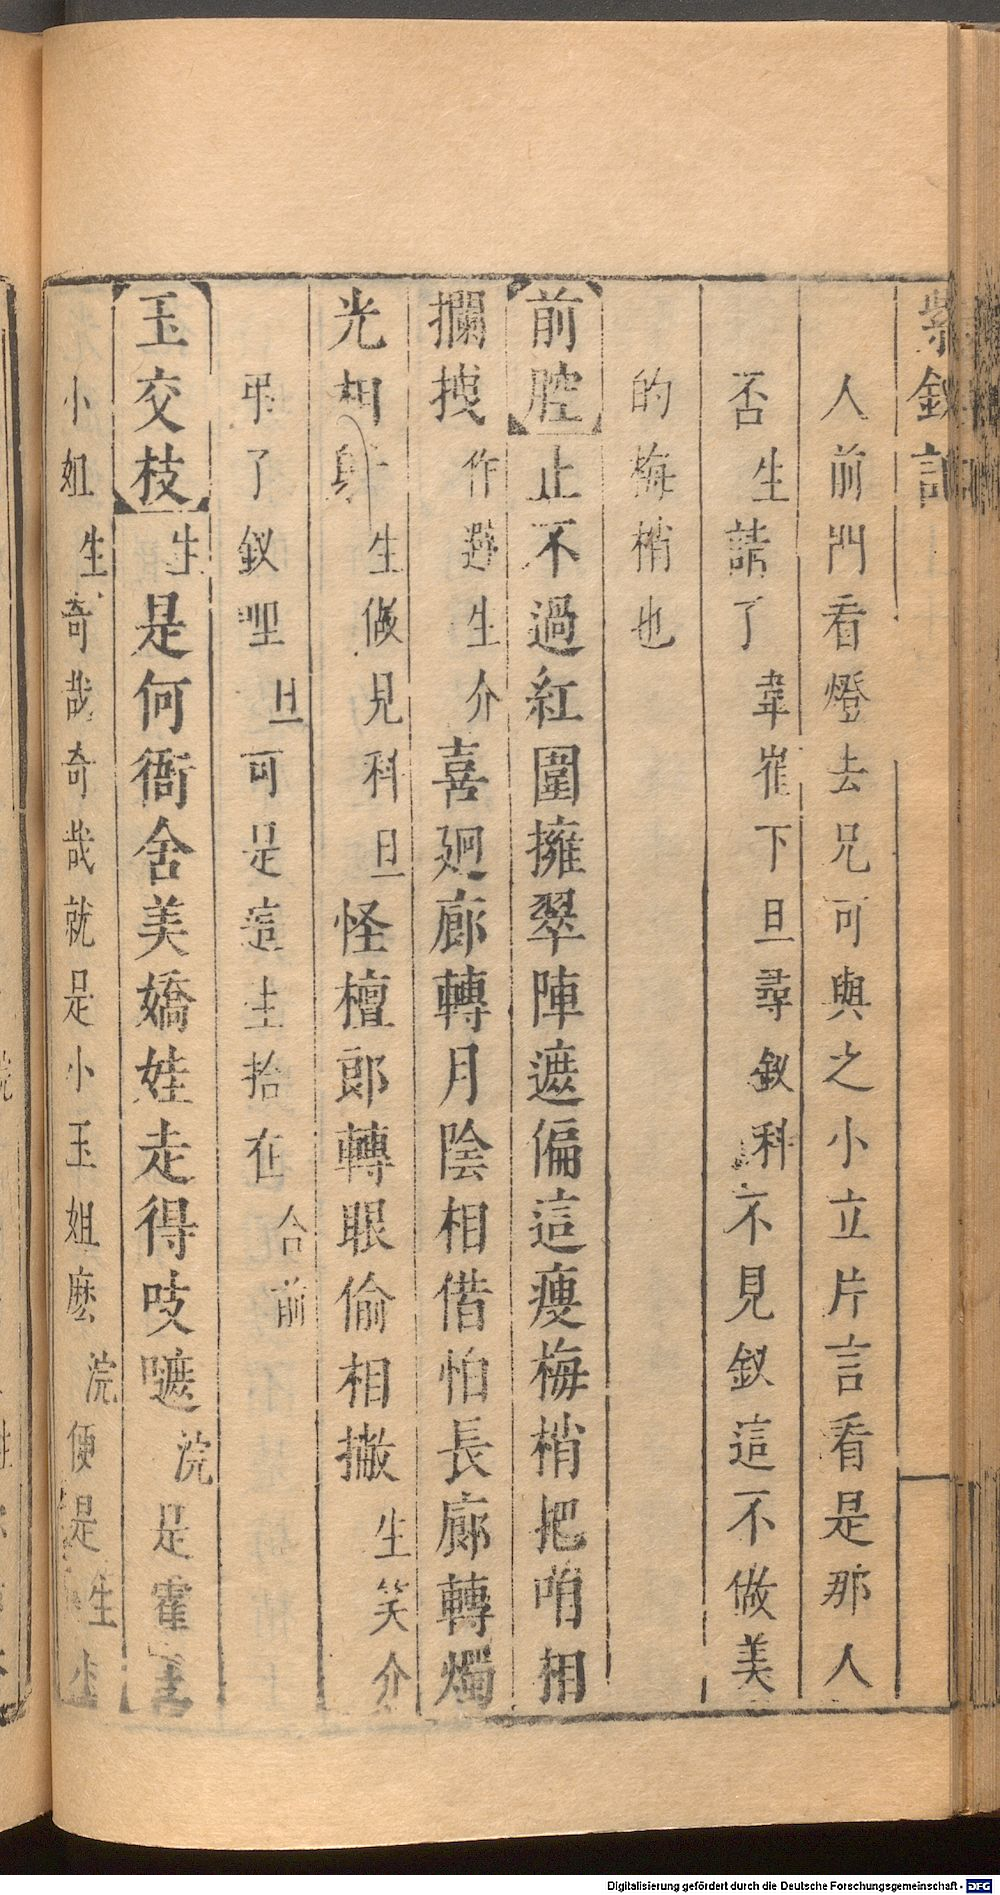 紫釵記
人前門看燈去兄可與之小立片言看是那人
否生請了韋崔下旦尋釵科不見釵這不做美
的梅梢也
前腔止不過紅圍擁翠陣遮偏這瘦梅梢把咱相
攔拽作避生介喜廻廊轉月陰相借怕長廊轉燭
光相射生做見科旦怪檀郎轉眼偷相撇生笑介
弔了釵哩旦可是這生拾在合前
玉交枝生是何衙舍美嬌娃走得吱嗻浣是霍
小姐生奇哉奇哉就是小玉姐麽浣便是生
Digitalisierung gefördert durch die Deutsche Forschungsgemeinschaft - DFG